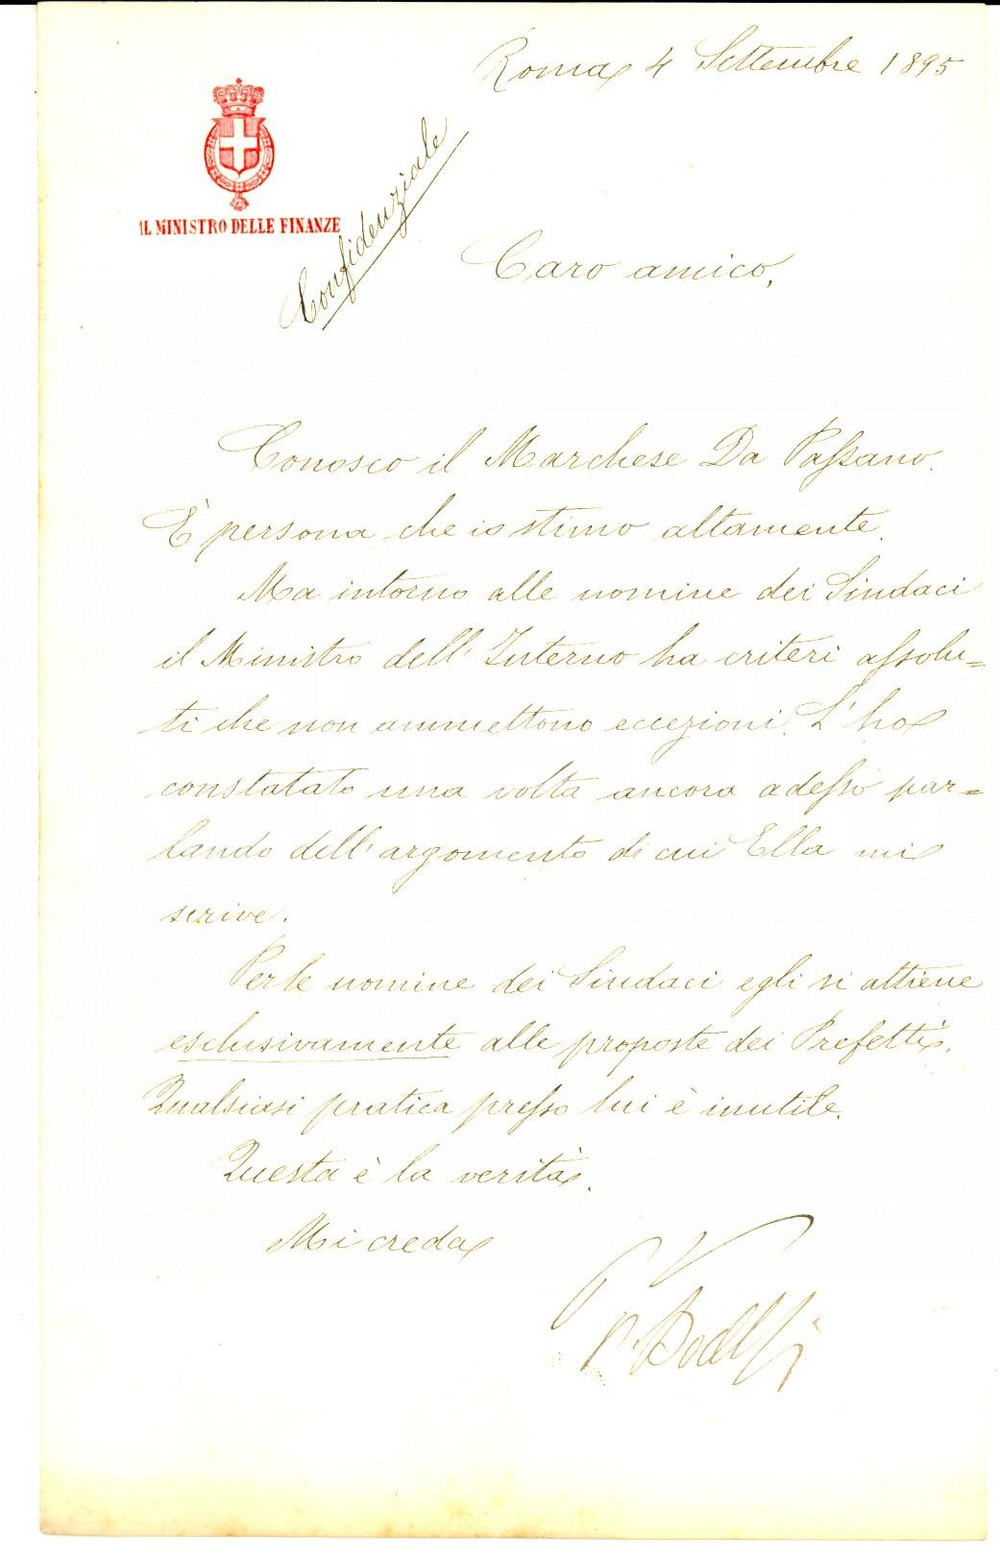 Roma 4 Settembre 1895
IL MINISTRO DELLE FINANZE
Confidenziale
Caro amico,
Conosco il Marchese Da Passano.
È persona che io stimo altamente.
Ma intorno alle nomine dei Sindaci
il Ministro dell'Interno ha criteri assolu=
ti che non ammettono eccezioni. L'ho
constatato una volta ancora adesso par=
lando dell'argomento di cui Ella mi
scrive.
Per le nomine dei Sindaci egli si attiene
esclusivamente alle proposte dei Prefetti.
Qualsiasi pratica presso lui è inutile.
Questa è la verità.
Mi creda
P. Boselli